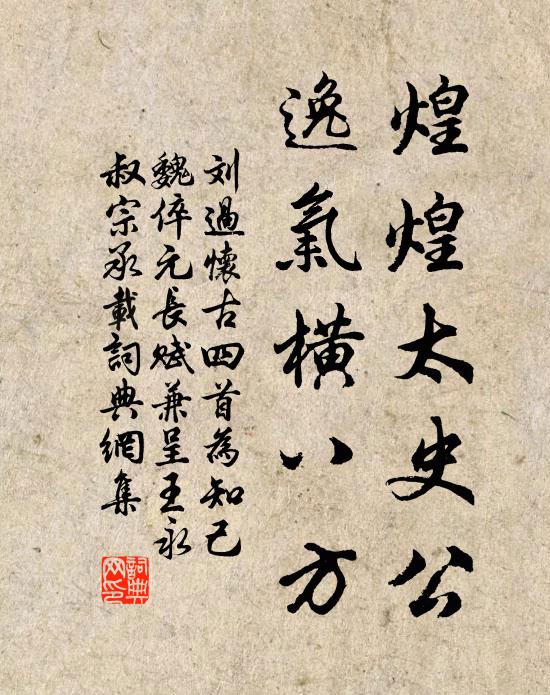 煌煌太史公
逸氣橫八方
刘過懷古四首為知己
魏倅元長赋兼呈王永
叔宗丞載詞典網集
詞典网印